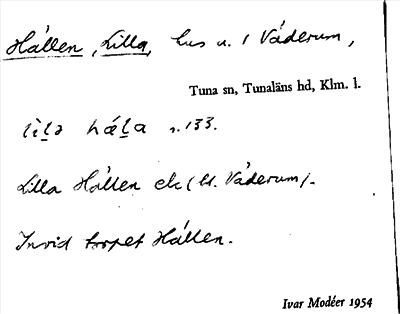 Hållen, Lilla, hus u. 1 Våderum,
Tuna sn, Tunaläns hd, Klm. l.
lìḷə håḷa n. 133.
Lilla Hållen ek (bl. Våderum).
Invid torpet Hållen.
Ivar Modéer 1954